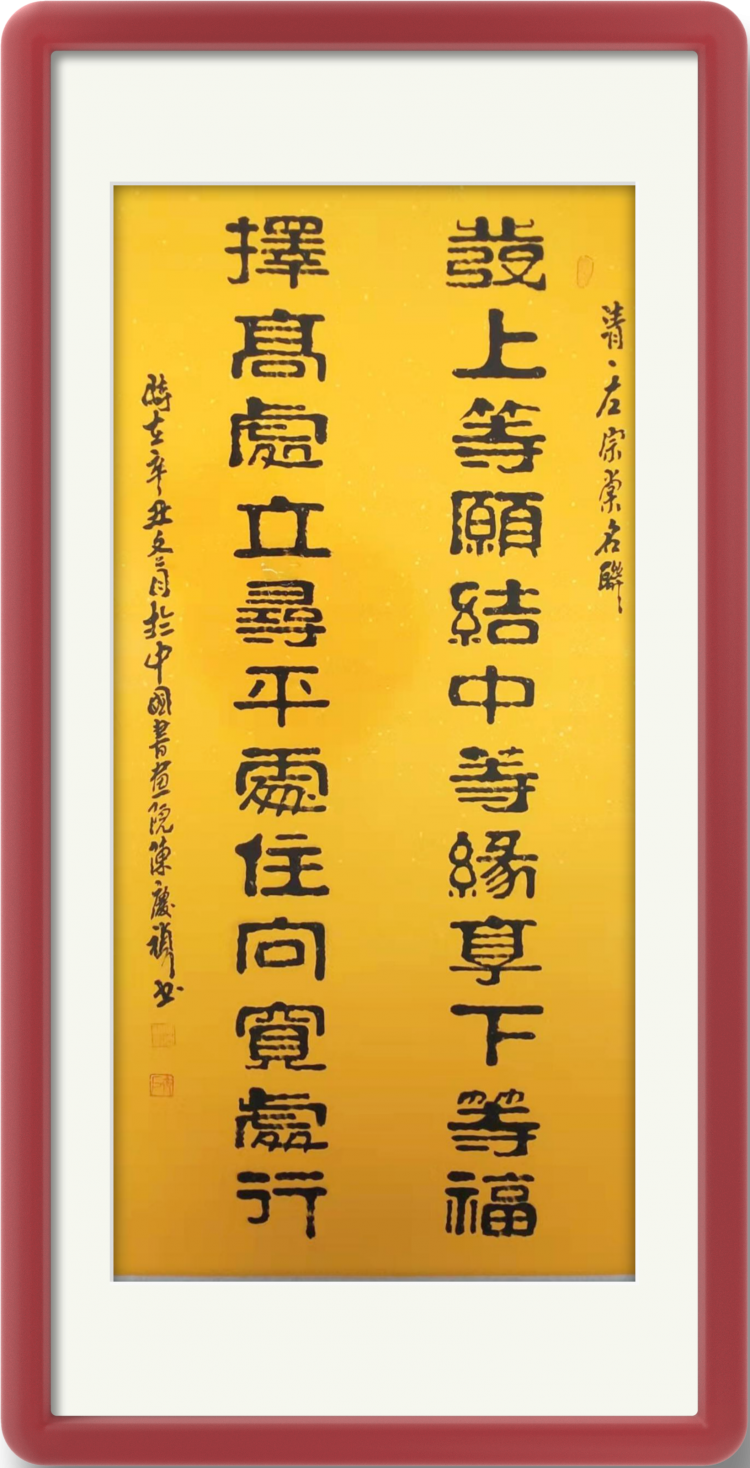 清、左宗棠名聯
發上等願結中等緣享下等福
擇高處立尋平處住向寬處行
時在辛丑冬月於中國書畫院陳慶禎书